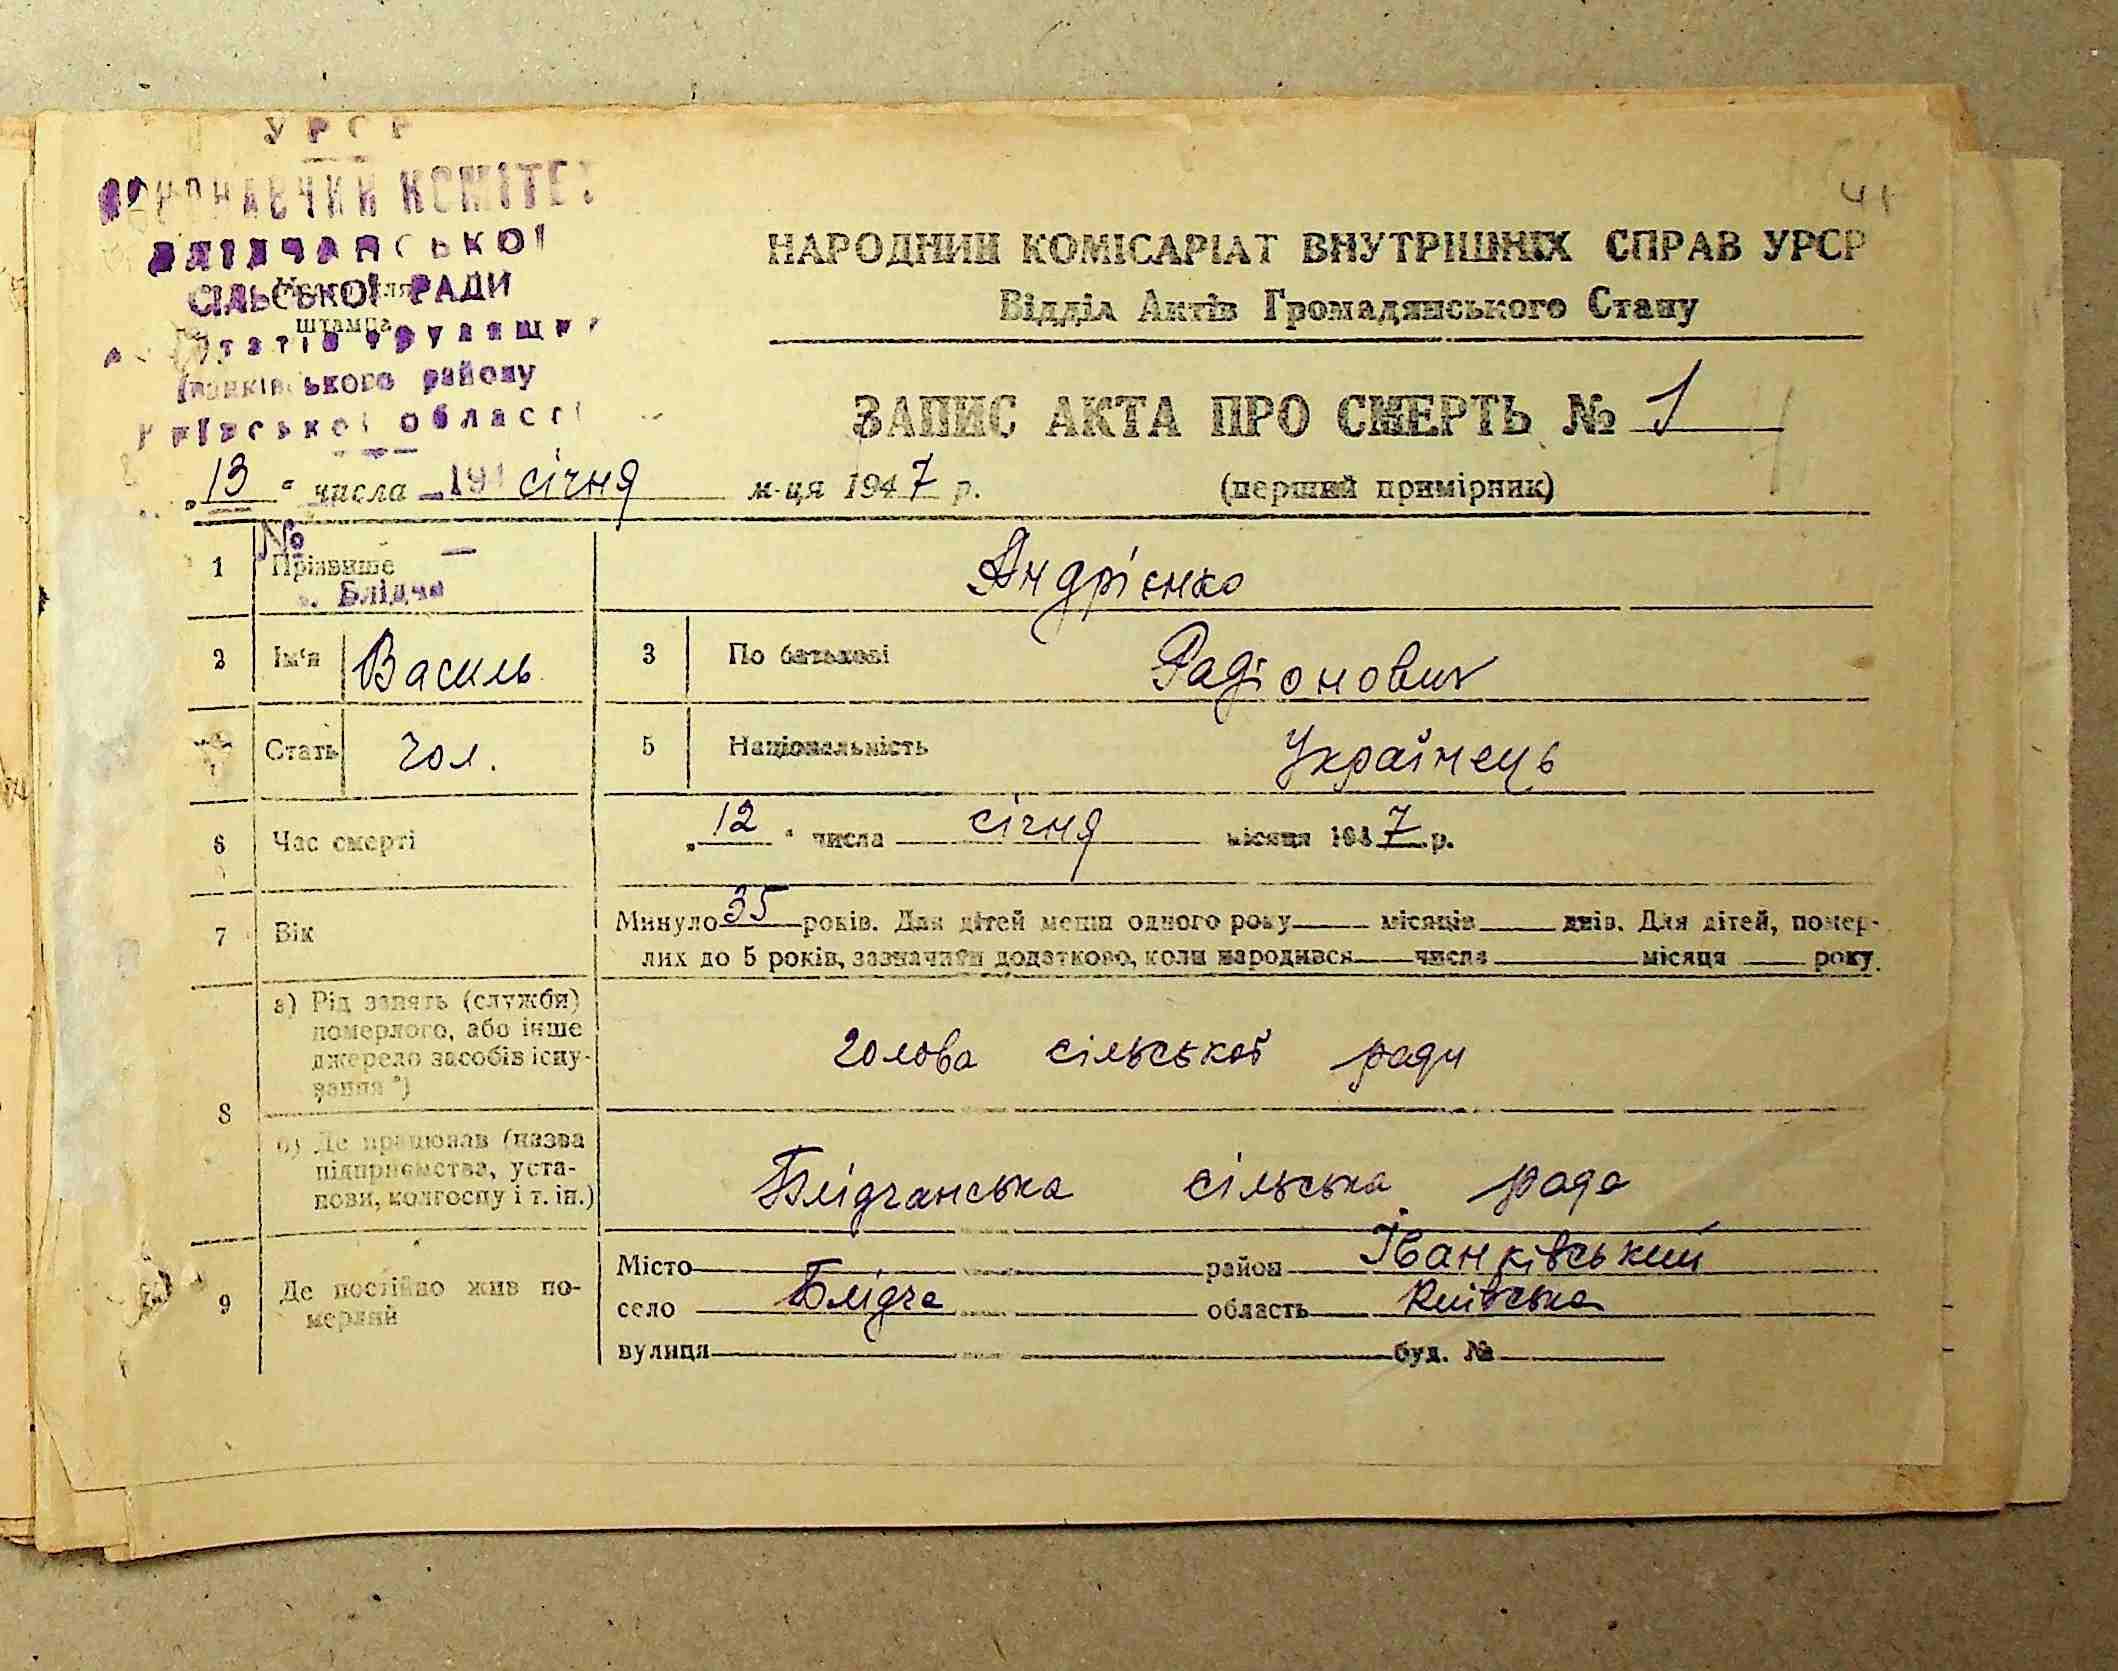 УРСР
ВИКОНАВЧИЙ КОМІТЕТ
БЛІДЧАНСЬКОЇ
СІЛЬСЬКОЇ РАДИ
штампа
Іванківського району
Київської області
41
НАРОДНИЙ КОМІСАРІАТ ВНУТРІШНІХ СПРАВ УРСР
Відділ Актів Громадянського Стану
ЗАПИС АКТА ПРО СМЕРТЬ № 1
„13“ числа січня м-ця 1947 р. (перший примірник)
№ —
1 Прізвище Андрієнко
с. Блідча
2 Ім'я Василь 3 По батькові Радіонович
Стать чол. 5 Національність Українець
6 Час смерті „12“ числа січня місяця 1947 р.
7 Вік Минуло 35 років. Для дітей менш одного року місяців днів. Для дітей, помер-
лих до 5 років, зазначити додатково, коли народився числа місяця року
8 а) Рід занять (служби)
померлого, або інше
джерело засобів існу-
вання *)
голова сільської ради
б) Де працював (назва
підприємства, уста-
нови, колгоспу і т. ін.)
Блідчанська сільська рада
9 Де постійно жив по-
мерлий
Місто район Іванківський
село Блідча область Київська
вулиця буд. №